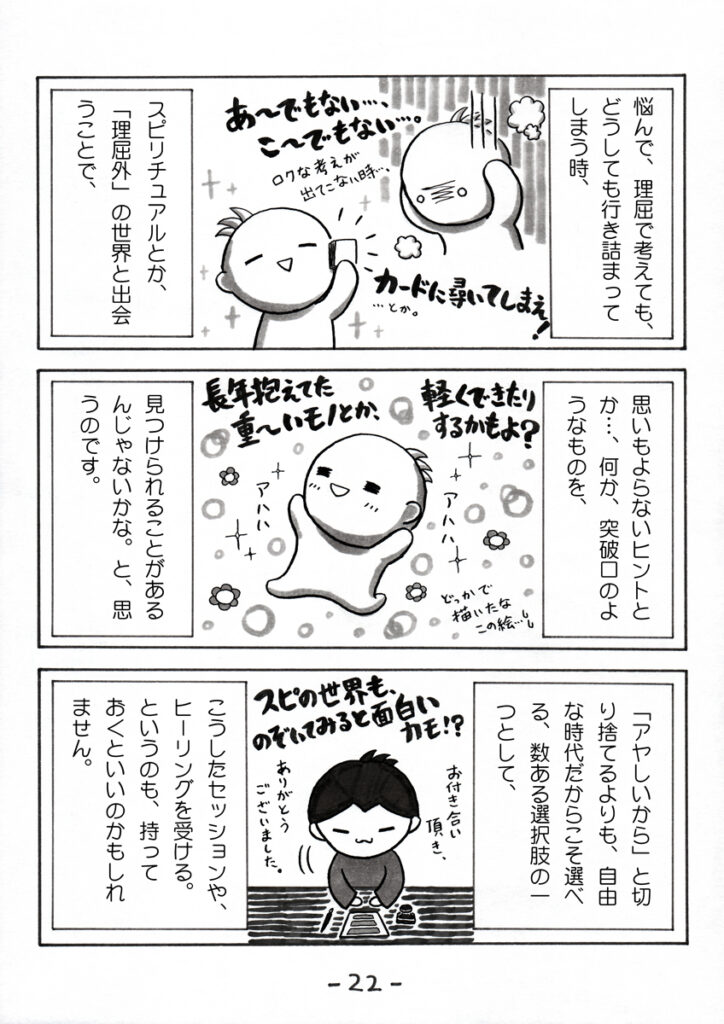 悩んで、理屈で考えても、
どうしても行き詰まって
しまう時、
あ〜でもない…、
こ〜でもない…。
ロクな考えが
出てこない時…、
カードに尋いてしまえ!
…とか。
スピリチュアルとか、
「理屈外」の世界と出会
うことで、
思いもよらないヒントと
か…、何か、突破口のよ
うなものを、
軽くできたり
するかもよ?
長年抱えてた
重〜いモノとか、
アハハ
アハハ
どっかで
描いたな
この絵…
見つけられることがある
んじゃないかな。と、思
うのです。
「アヤしいから」と切
り捨てるよりも、自由
な時代だからこそ選べ
る、数ある選択肢の一
つとして、
スピの世界も、
のぞいてみると面白い
カモ!?
お付き合い
頂き、
ありがとう
ございました。
こうしたセッションや、
ヒーリングを受ける。
というのも、持って
おくといいのかもしれ
ません。
-22-